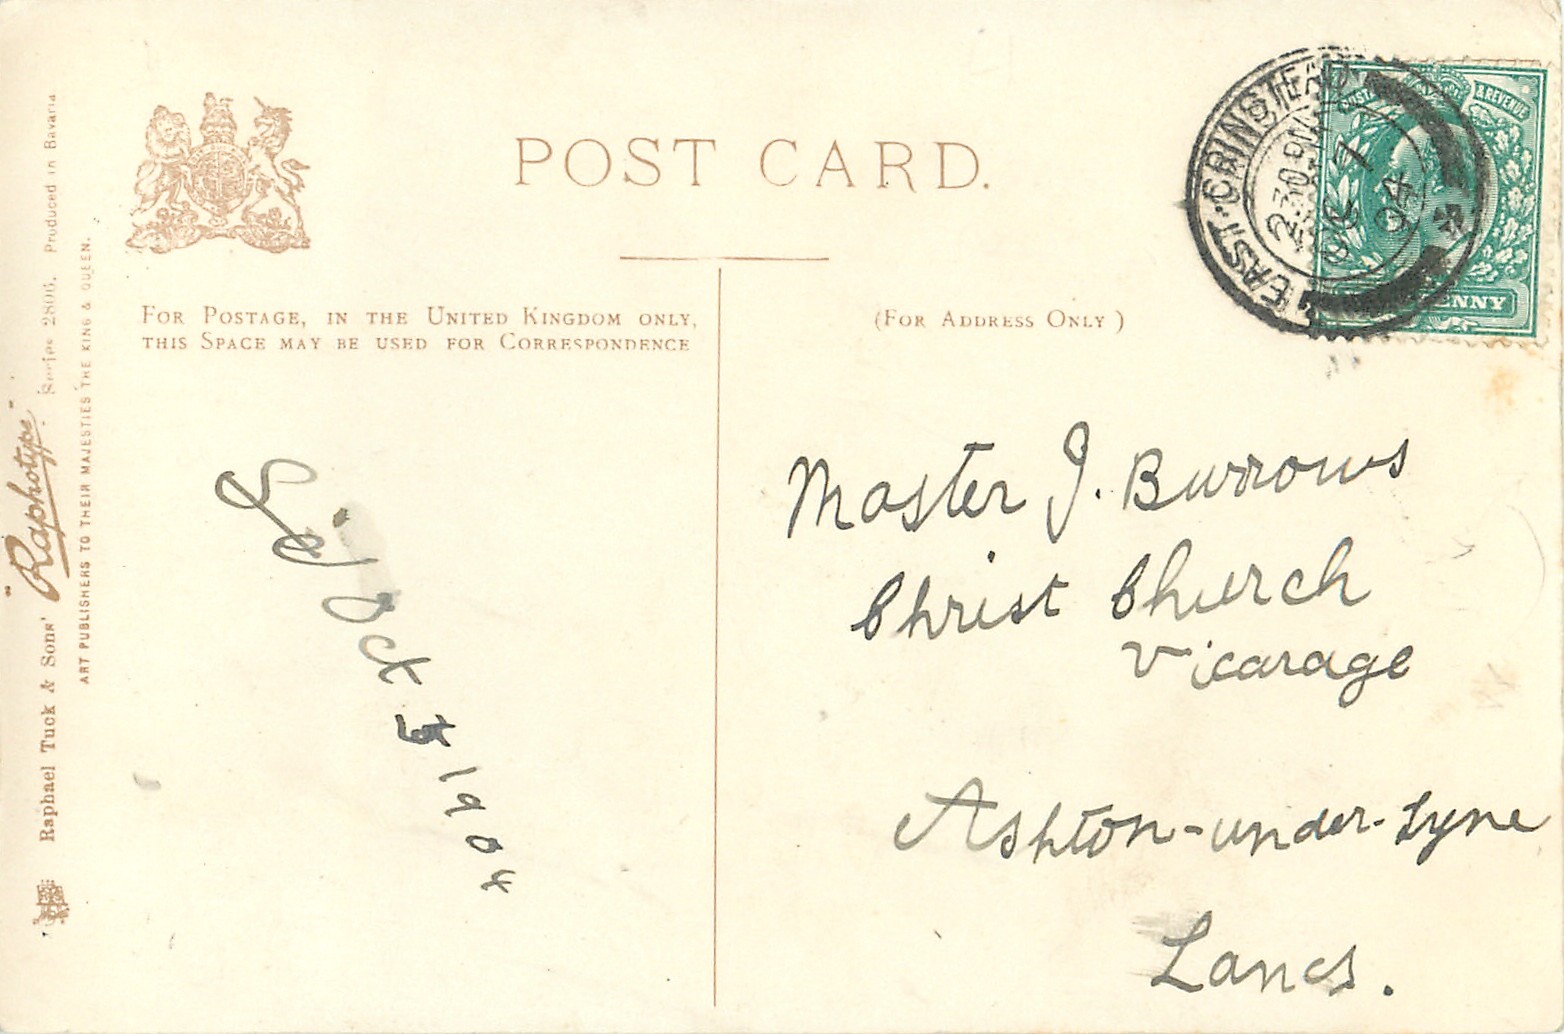 POST CARD.
FOR POSTAGE, IN THE UNITED KINGDOM ONLY,
THIS SPACE MAY BE USED FOR CORRESPONDENCE
(FOR ADDRESS ONLY)
Raphael Tuck & Sons' "Raphotype" Series 2806. Produced in Bavaria
ART PUBLISHERS TO THEIR MAJESTIES THE KING & QUEEN.
EAST GRINSTEAD
2.30 PM
7
04
& REVENUE
Oct
1904
Master J. Burrows
Christ Church
Vicarage
Ashton-under-Lyne
Lancs.